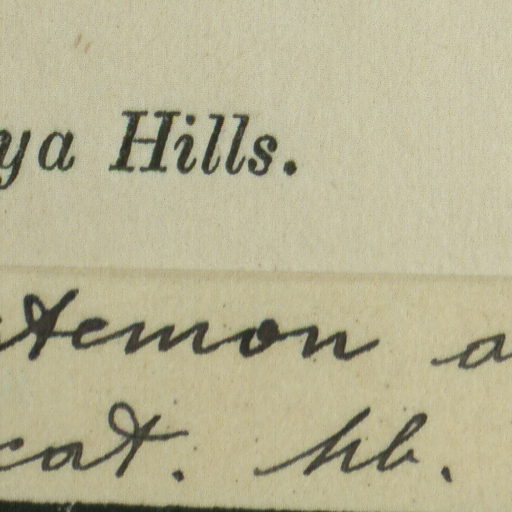 ya Hills.
temon a
cat. hb.